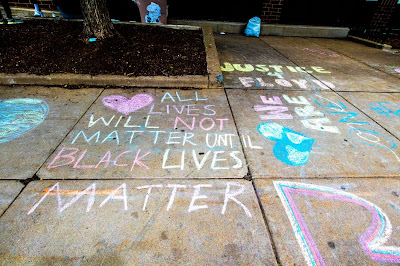 ALL
LIVES
WILL NOT
MATTER UNTIL
BLACK LIVES
MATTER
JUSTICE
4 FLOYD
WE
ARE